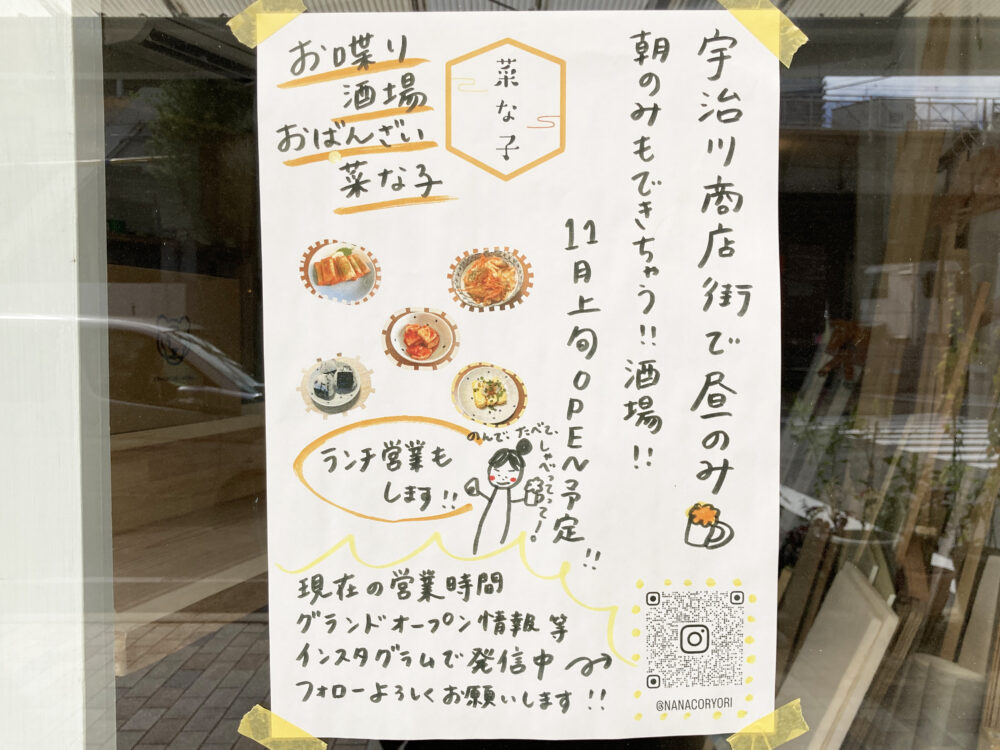 宇治川商店街で昼のみ
朝のみもできちゃう!!酒場!!
11月上旬OPEN予定!!
菜な子
お喋り
酒場
おばんざい
菜な子
のんで、たべて、
しゃべってって!
ランチ営業も
します!!
現在の営業時間
グランドオープン情報等
インスタグラムで発信中
フォローよろしくお願いします!!
@NANACORYORI